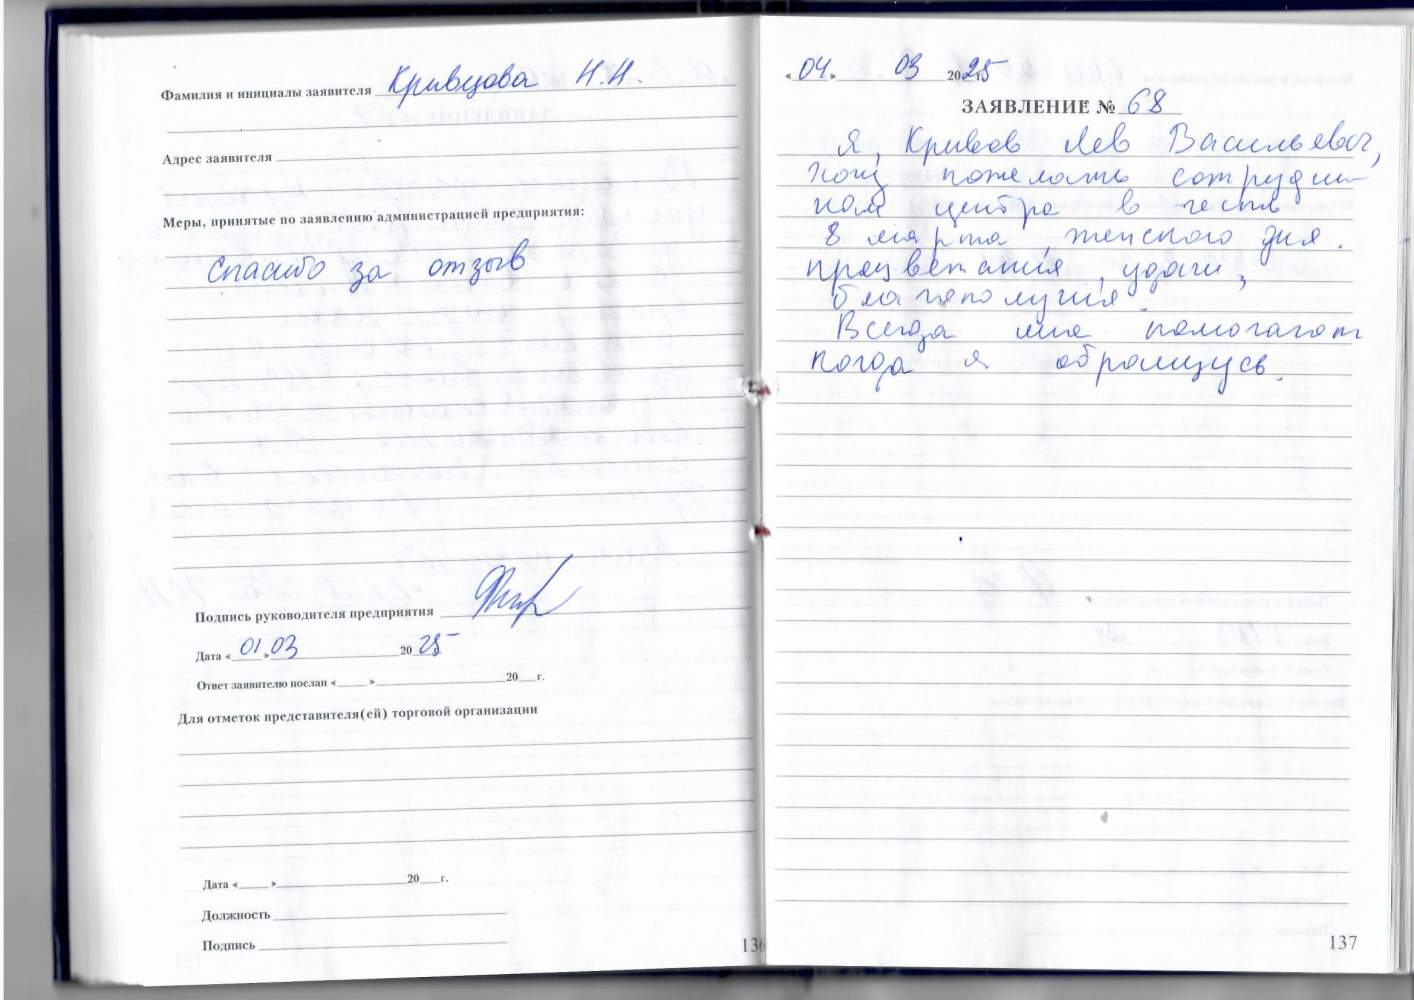 Фамилия и инициалы заявителя Кривцова Н.Н.
Адрес заявителя
Меры, принятые по заявлению администрацией предприятия:
Спасибо за отзыв
Подпись руководителя предприятия
Дата «01» 03 2025
Ответ заявителю послан «___» 20__г.
Для отметок представителя(ей) торговой организации
Дата «___» 20__г.
Должность
Подпись
136
«04» 03 2025
ЗАЯВЛЕНИЕ № 68
Я, Кривов Лев Васильевич,
хочу пожелать сотрудни-
кам центра в честь
8 марта, женского дня.
процветания, удачи,
благополучия.
Всегда мне помогают
когда я обращусь.
137